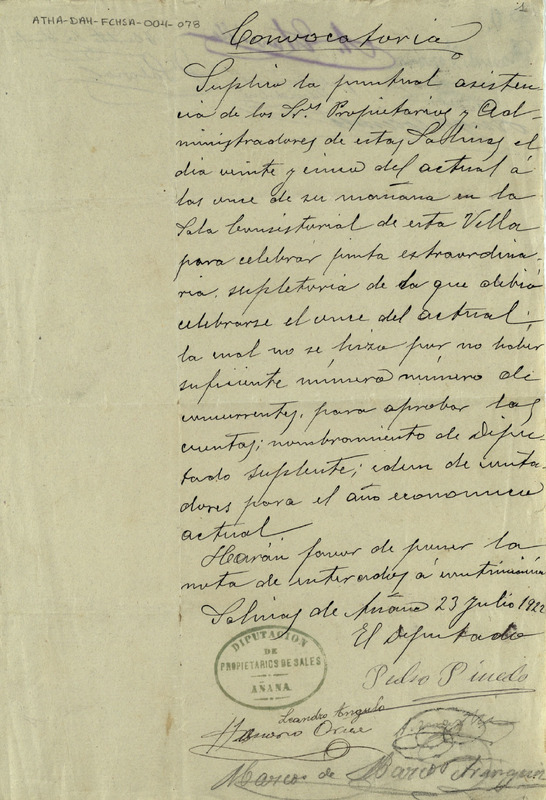 ATHA-DAH-FCHSA-004-078
Convocatoria
Suplico la puntual asisten-
cia de los Srs Propietarios y Ad-
ministradores de estas Salinas el
dia veinte y cinco del actual á
las once de su mañana en la
Sala Consistorial de esta Villa
para celebrar junta extraordina-
ria, supletoria de la que debió
celebrarse el once del actual;
la cual no se hizo por no haber
suficiente número número de
concurrentes, para aprobar las
cuentas; nombramiento de Dipu-
tado suplente; idem de conta-
dores para el año economico
actual
Harán favor de poner la
nota de enterados á continuación
Salinas de Añana 23 Julio 1922
El Diputado
DIPUTACION
DE
PROPIETARIOS DE SALES
AÑANA
Pedro Pinedo
Leandro Angulo
Marcos de Marcos